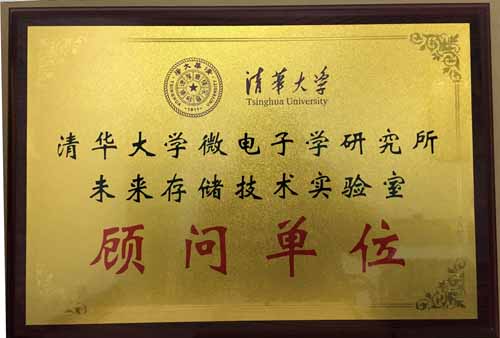 清華大学
Tsinghua University
清华大学微电子学研究所
未来存储技术实验室
顾问单位